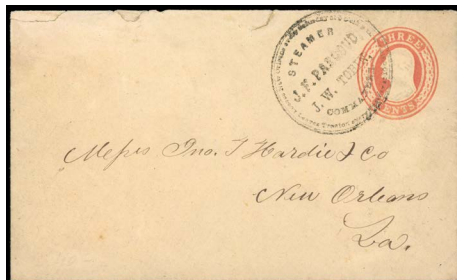 STEAMER
J. F. PARGOUD
J. W. TOBIN
COMMANDER
THREE
CENTS
Messrs Jno. T Hardie & Co
New Orleans
La.